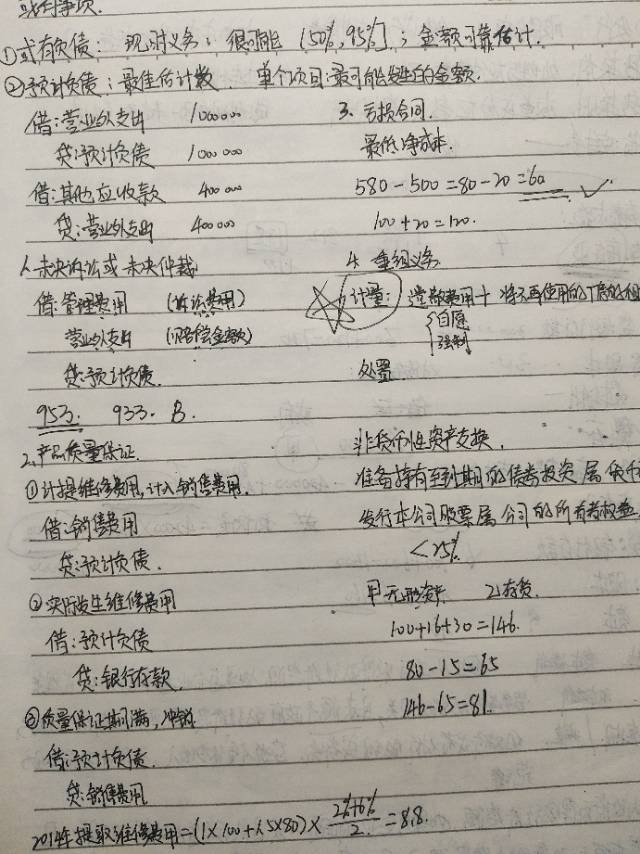 或有事项.
①或有负债：现时义务；很可能 (50%,95%]；金额可靠估计.
②预计负债：最佳估计数. 单个项目:最可能发生的金额.
借:营业外支出 1000000
贷:预计负债 1000000
借:其他应收款 400000
贷:营业外支出 400000
1.未决诉讼或未决仲裁
借:管理费用 (诉讼费用)
营业外支出 (赔偿金额)
贷:预计负债.
953. 933. B.
2.产品质量保证.
①计提维修费用,计入销售费用.
借:销售费用
贷:预计负债.
②实际发生维修费用
借:预计负债
贷:银行存款.
③质量保证期满,冲销
借:预计负债.
贷:销售费用
2014年提取维修费用=(1×100+1.5×80)×(2%+6%)/2=8.8.
3. 亏损合同.
最低净成本.
580-500=80-20=60
100+20=120.
4. 重组义务
计量: 遣散费用+将不再使用的厂房的租
自愿
强制
处置
非货币性资产交换.
准备持有至到期的债券投资属货币
发行本公司股票属公司的所有者权益
<25%
甲无形资产 乙存货.
100+16+30=146.
80-15=65
146-65=81.